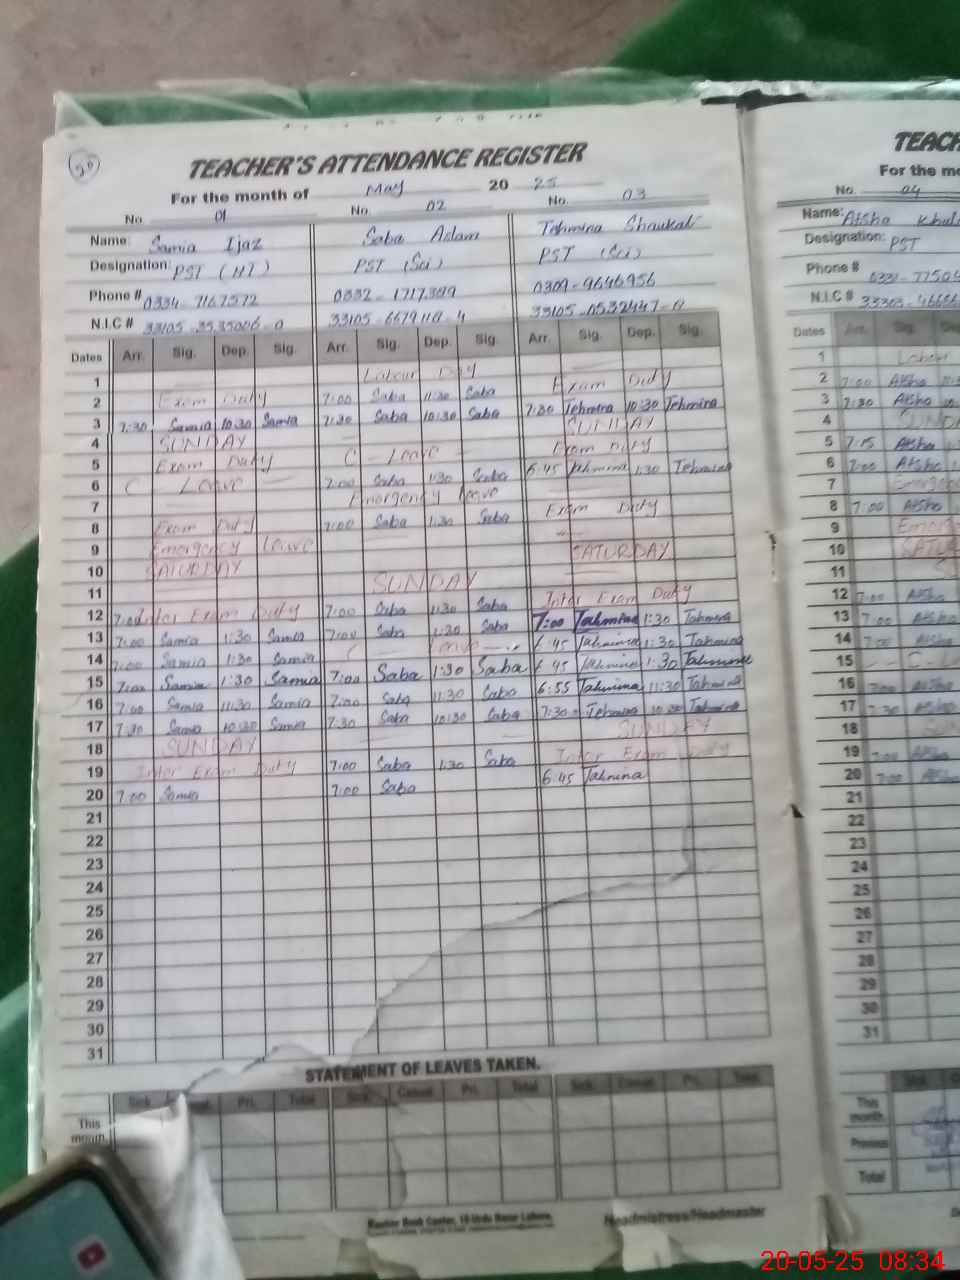 20
TEACHER'S ATTENDANCE REGISTER
For the month of May 2025
No. 01 No. 02 No. 03
Name: Samia Ijaz Saba Aslam Tehmina Shaukat
Designation: PST (HT) PST (Sci) PST (Sci)
Phone # 0334-7167572 0332-1717399 0309-9646956
N.I.C # 33105- 33105- 33105-
Dates Arr. Sig. Dep. Sig. Arr. Sig. Dep. Sig. Arr. Sig. Dep. Sig.
1 Labour Day
2 Exam Duty 7:00 Saba 11:30 Saba Exam Duty
3 7:30 Samia 10:30 Samia 7:30 Saba 10:30 Saba 7:30 Tehmina 10:30 Tehmina
4 SUNDAY SUNDAY
5 Exam Duty Leave Exam Duty
6 Leave 7:00 Saba 1:30 Saba 6:45 Tahmina 1:30 Tehmina
7 Emergency leave
8 Exam Duty 7:00 Saba 1:30 Saba Exam Duty
9 Emergency Leave
10 SATURDAY SATURDAY
11 SUNDAY
12 Inter Exam Duty 7:00 Saba 1:30 Saba Inter Exam Duty
13 7:00 Samia 1:30 Samia 7:00 Saba 1:30 Saba 7:00 Tahmina 1:30 Tahmina
14 7:00 Samia 1:30 Samia Leave 6:45 Tahmina 1:30 Tahmina
15 7:00 Samia 1:30 Samia 7:00 Saba 1:30 Saba 6:45 Tahmina 1:30 Tahmina
16 7:00 Samia 11:30 Samia 7:00 Saba 11:30 Saba 6:55 Tahmina 11:30 Tahmina
17 7:30 Samia 10:30 Samia 7:30 Saba 10:30 Saba 7:30 Tehmina 10:30 Tahmina
18 SUNDAY SUNDAY
19 Inter Exam Duty 7:00 Saba 1:30 Saba Inter Exam Duty
20 7:00 Samia 7:00 Saba 6:45 Tahmina
21
22
23
24
25
26
27
28
29
30
31
STATEMENT OF LEAVES TAKEN.
Sick. Casual. Pri. Total Sick. Casual Pri. Total Sick. Casual. Pri. Total
This month
Headmistress/Headmaster
TEACH
For the mo
No. 04
Name: Atsha
Designation: PST
Phone # 0331-77504
N.I.C # 33303-
Dates Arr. Sig.
1 Labour
2 7:00 Atsha
3 7:30 Atsha
4
5 7:15 Atsha
6 7:00 Atsha
7
8 7:00 Atsha
9
10
11
12 7:00 Atsha
13 7:00 Atsha
14 7:00 Atsha
15
16 7:00 Atsha
17 7:30 Atsha
18
19 7:00 Atsha
20 7:00 Atsha
21
22
23
24
25
26
27
28
29
30
31
Sick.
This month
Previous
Total
20-05-25 08:34